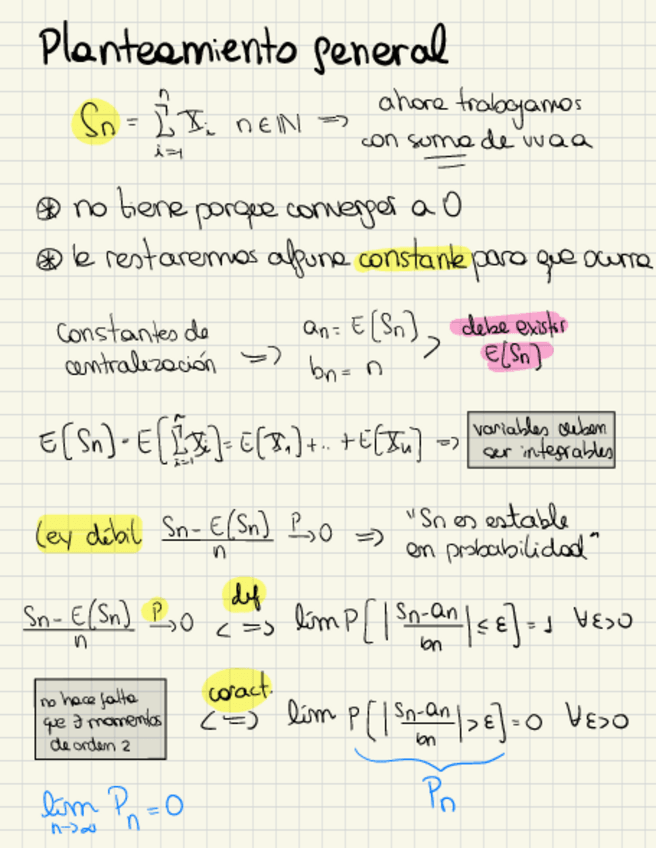 Planteamiento general
Sn = ∑_{i=1}^{n} X_i n ∈ ℕ => ahora trabajamos
con suma de vvaa
⊛ no tiene porque converger a 0
⊛ le restaremos alguna constante para que ocurra
Constantes de
centralización => an = E[Sn]
bn = n
> debe existir
E[Sn]
E[Sn] = E[∑_{i=1}^{n} X_i] = E[X_1] + .. + E[X_n] =>
variables deben
ser integrables
Ley débil (Sn - E(Sn))/n →^P 0 => "Sn es estable
en probabilidad"
(Sn - E(Sn))/n →^P 0 <=>^{def} lím P[|(Sn - an)/bn| ≤ ε] = 1 ∀ε>0
no hace falta
que ∃ momentos
de orden 2
<=>^{caract.} lím P[|(Sn - an)/bn| > ε] = 0 ∀ε>0
Pn
lím_{n→∞} Pn = 0